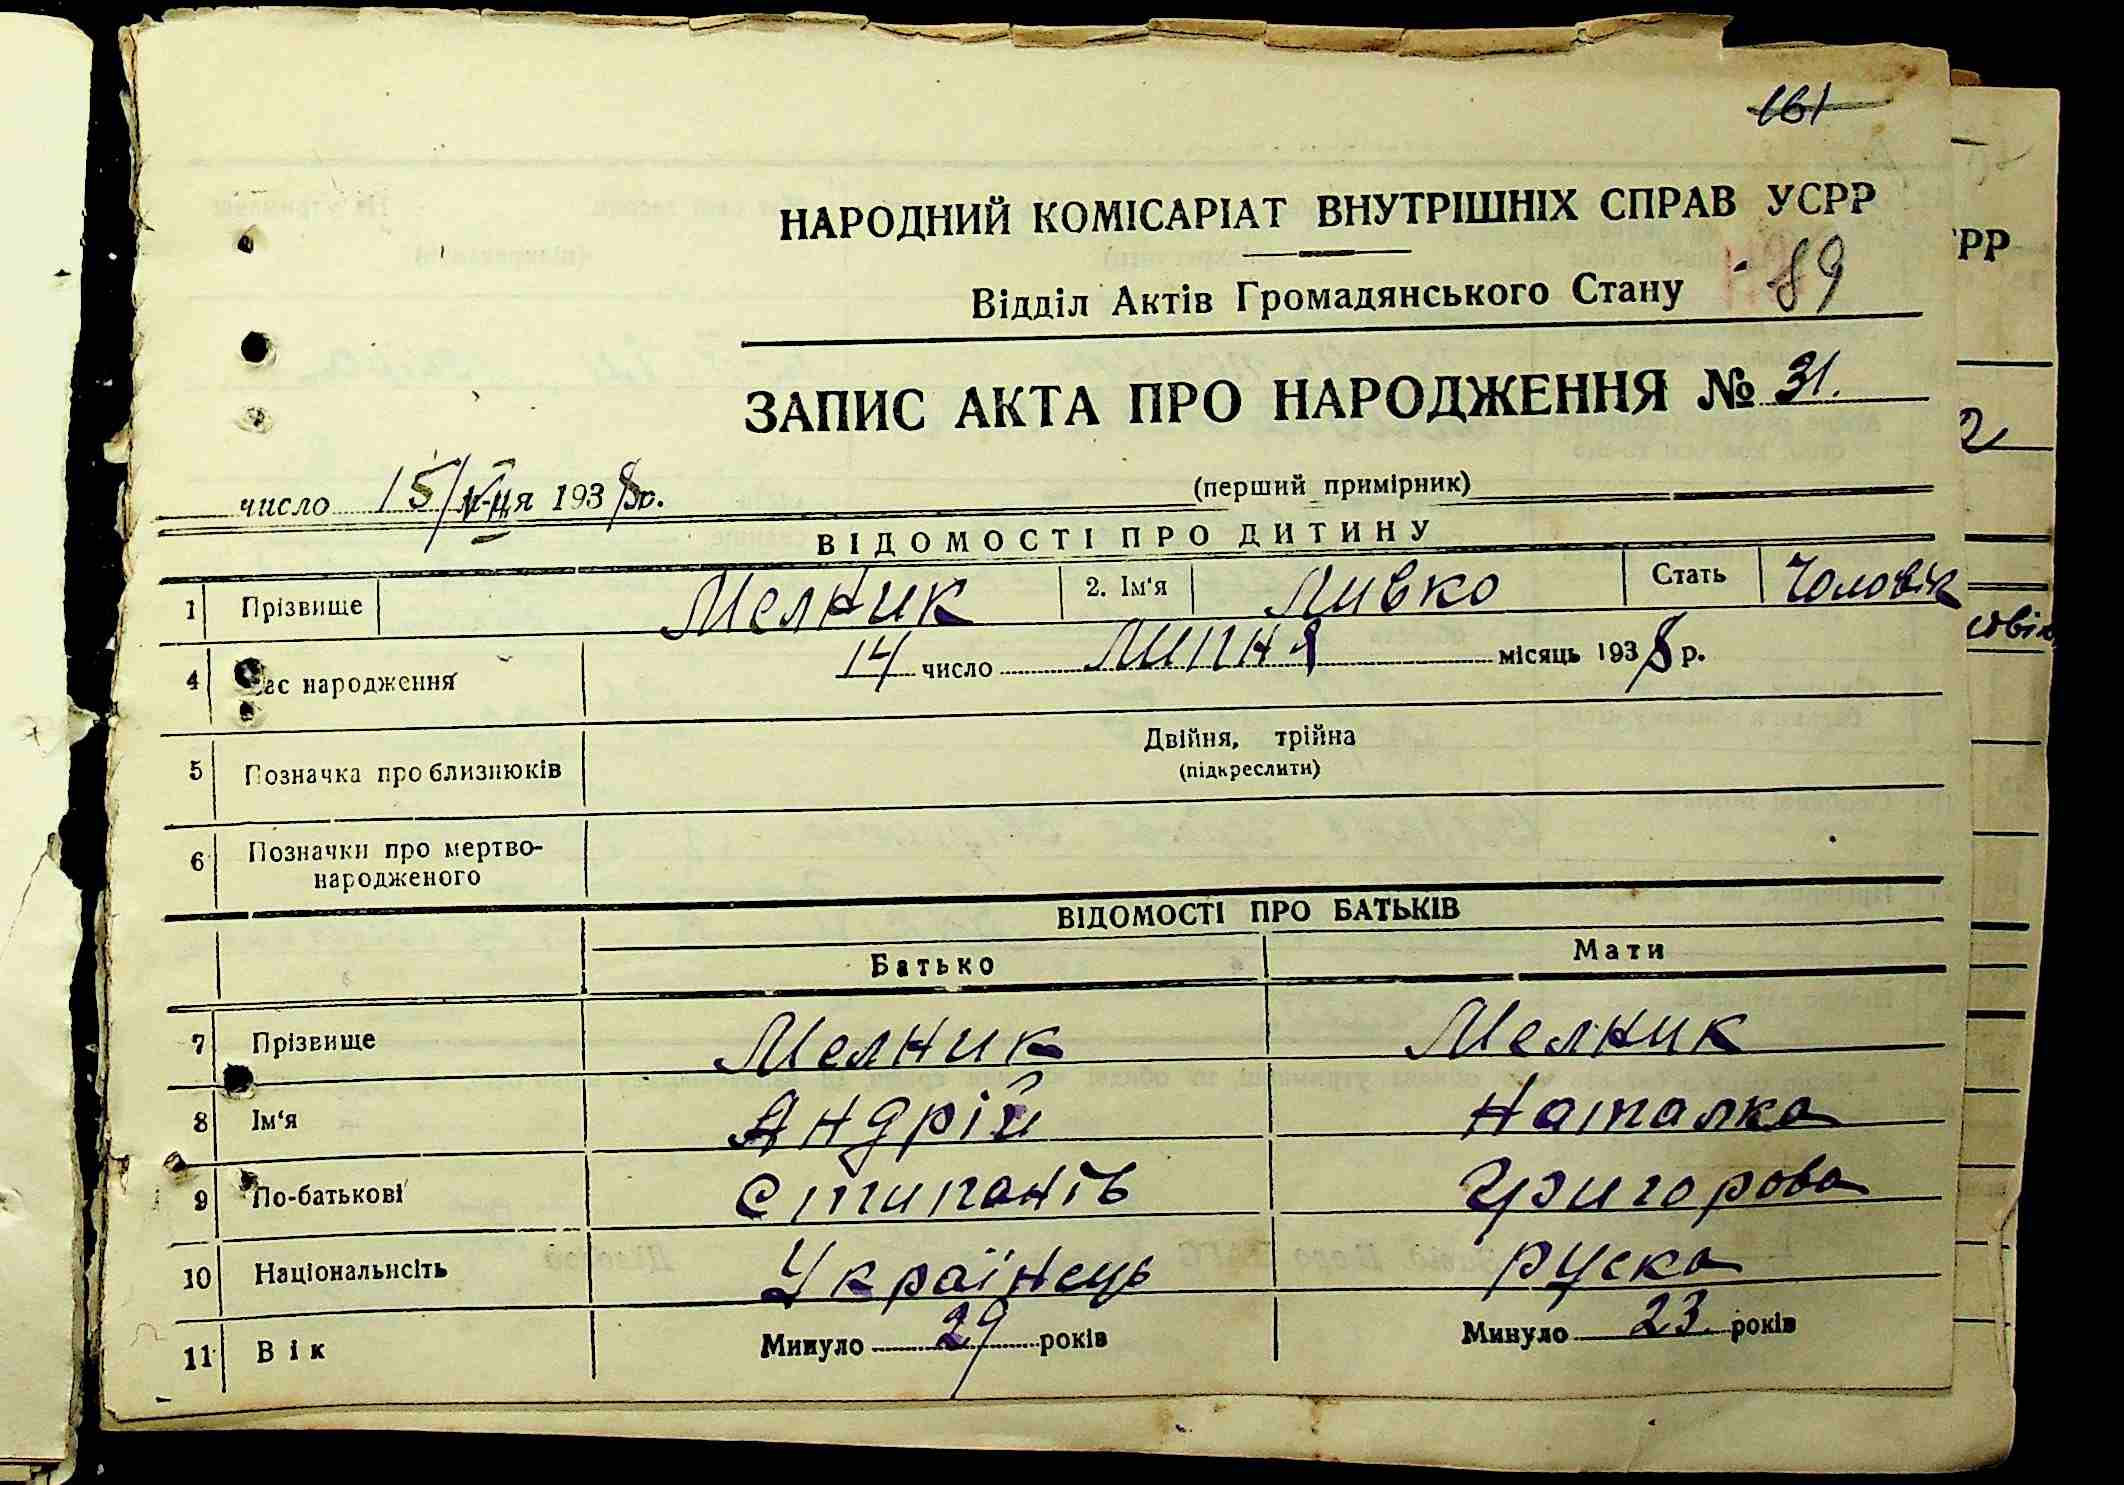 161
НАРОДНИЙ КОМІСАРІАТ ВНУТРІШНІХ СПРАВ УСРР
Відділ Актів Громадянського Стану 89
ЗАПИС АКТА ПРО НАРОДЖЕННЯ № 31.
(перший примірник)
число 15/ м-ця 1938р.
ВІДОМОСТІ ПРО ДИТИНУ
1 Прізвище Мелник 2. Ім'я Ливко Стать Чоловік
4 Час народження 14 число Липня місяць 1938 р.
5 Позначка про близнюків Двійня, трійна
(підкреслити)
6 Позначки про мертво-
народженого
ВІДОМОСТІ ПРО БАТЬКІВ
Батько Мати
7 Прізвище Мелник Мелник
8 Ім'я Андрій Наталка
9 По-батькові Стипанів Григорова
10 Національнсіть Українець руска
11 Вік Минуло 29 років Минуло 23 років